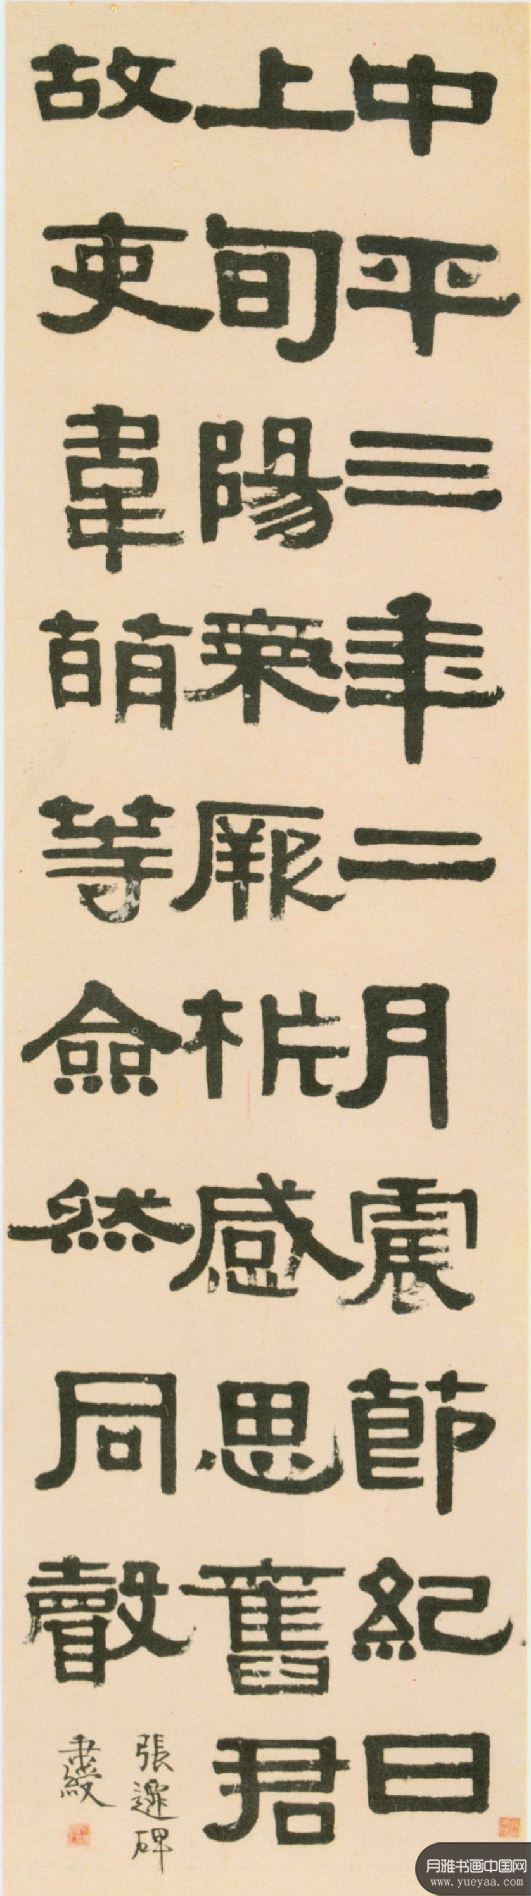 中平三年二月震節紀日
上旬陽氣厥析感思舊君
故吏韋萌等僉然同聲
張遷碑
月雅书画中国网
www.yueyaa.com